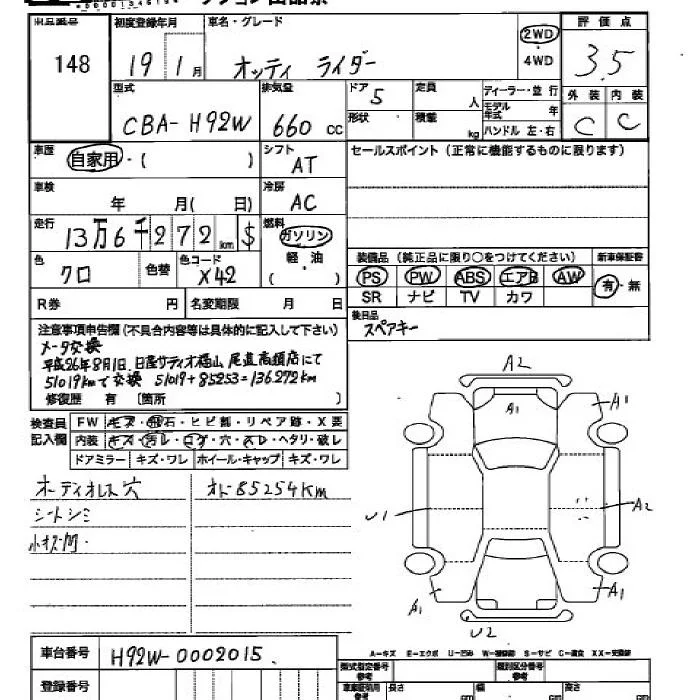 出品番号 初度登録年月 車名・グレード 評価点
148 19 1月 オッティ ライダー 2WD 4WD 3.5
型式 排気量 ドア 定員 ディーラー・並行 外装 内装
CBA-H92W 660cc 5 人 モデル年式 年 C C
形状 積載 kg ハンドル 左・右
車歴 自家用・( ) シフト AT セールスポイント (正常に機能するものに限ります)
車検 年 月( 日) 冷房 AC
走行 13万6千272km $ 燃料 ガソリン 軽・油 ( )
色 クロ 色替 色コード X42 装備品 (純正品に限り○をつけてください) 新車保証書
PS PW ABS エアB AW 有・無
SR ナビ TV カワ
R券 円 名変期限 月 日 後日品
スペアキー
注意事項申告欄 (不具合内容等は具体的に記入して下さい)
メータ交換
平成26年8月1日 日産サティオ福山 尾道高須店にて
51019kmで交換 51019+85253=136272km
修復歴 有 〔箇所 〕
検査員記入欄 FW キズ・飛石・ヒビ割・リペア跡・X要
内装 キズ・汚レ・コゲ・穴・スレ・ヘタリ・破レ
ドアミラー キズ・ワレ ホイール・キャップ キズ・ワレ
オーディオレス穴 オド85254km
シートシミ
A2
A1 A1
U1 A2
A1 A1
U2
A-キズ E-エクボ U-凹み W-補修跡 S-サビ C-腐食 XX-交換跡
車台番号 H92W-0002015
登録番号
型式指定番号 参考 類別区分番号 参考
長さ cm 幅 cm 高さ cm